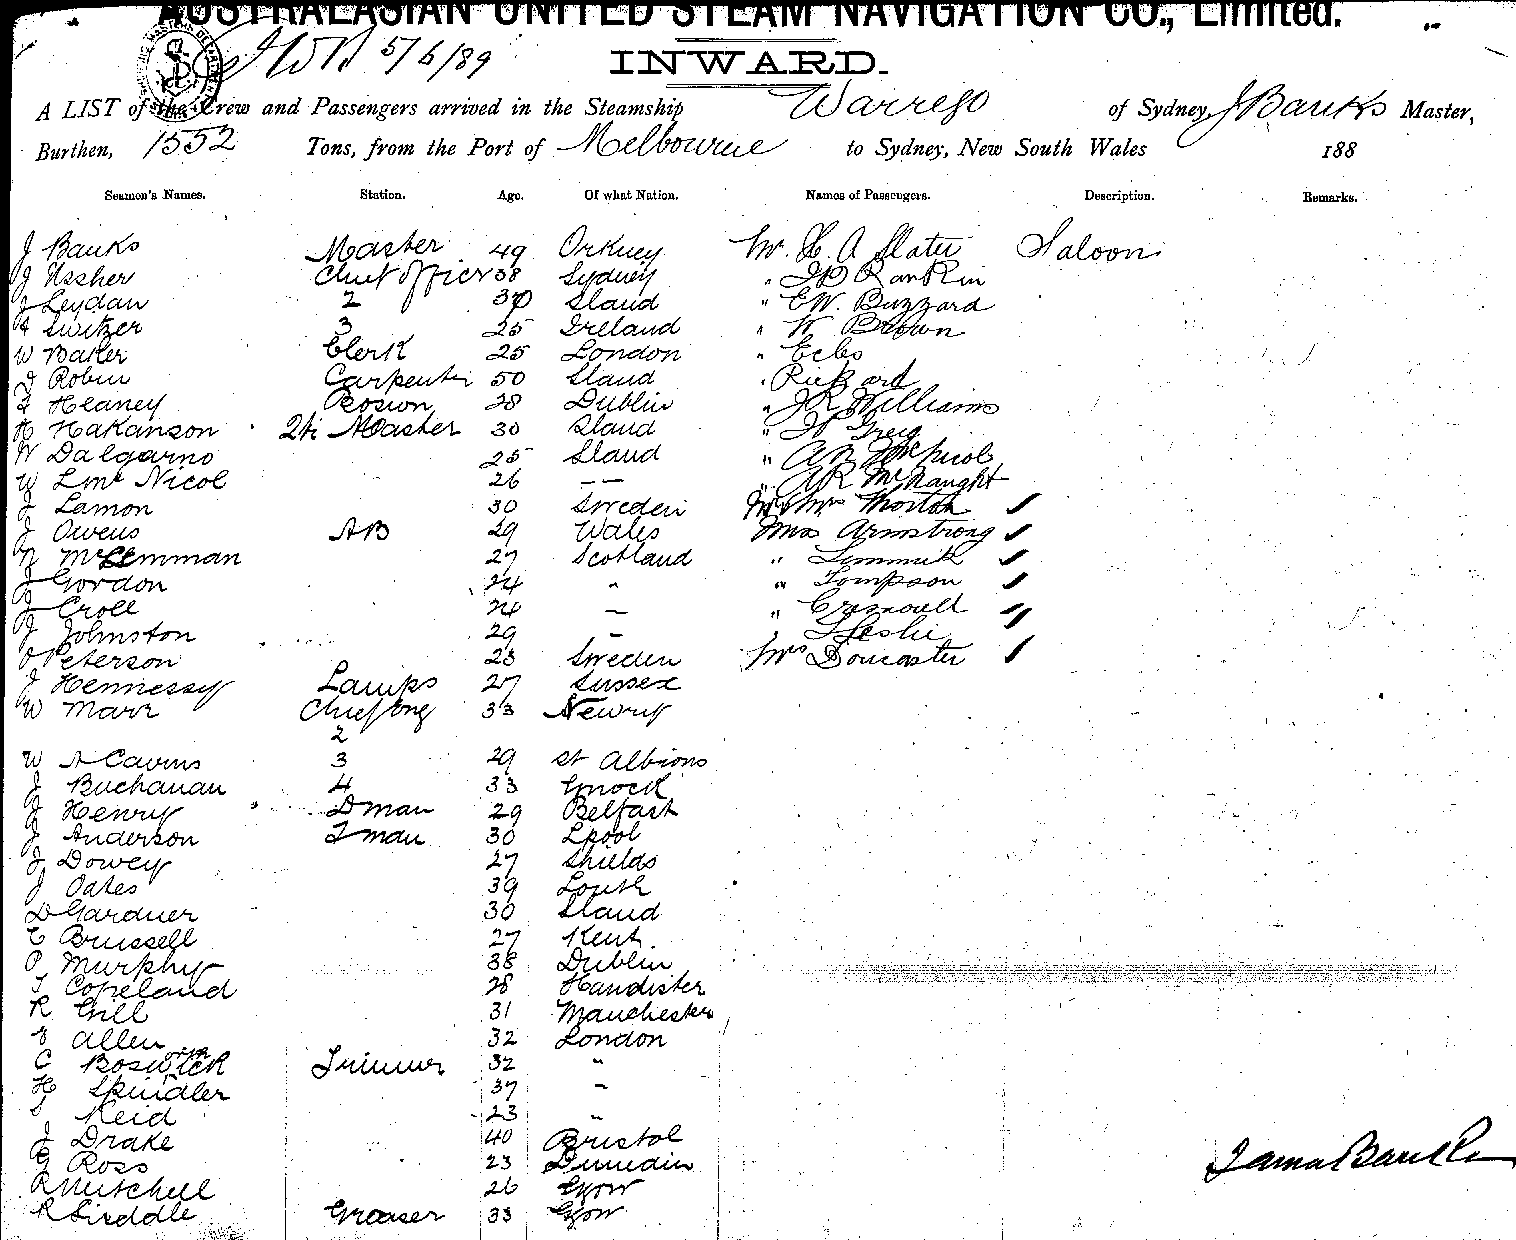 AUSTRALASIAN UNITED STEAM NAVIGATION CO., Limited.
5/6/89
INWARD.
A LIST of the Crew and Passengers arrived in the Steamship Warrego of Sydney, J Banks Master,
Burthen, 1552 Tons, from the Port of Melbourne to Sydney, New South Wales 188
Seamen's Names. Station. Age. Of what Nation. Names of Passengers. Description. Remarks.
J Banks Master 49 Orkney Mr. H. A Slater Saloon
J Ussher Chief officer 38 Sydney " J B Rankin
J Leydan 2 30 Sland " E W. Buzzard
Switzer 3 25 Ireland " W Brown
W Baker Clerk 25 London "
J Robin Carpenter 50 Sland " Rickard
Heaney Bosion 28 Dublin " J R Williams
H Hakanson Qtr Master 30 Sland " Greig
W Dalgarno 25 Sland " McNicol
W Nicol 26 — — " A R McNaught
J Lamon 30 Sweden Mr & Mrs Morton
J Owens AB 29 Wales Miss Armstrong
N 27 Scotland "
J Gordon 24 " " Tompson
J Croll 24 — "
J Johnston 29 – Leslie
O Peterson 23 Sweden Mrs Doncaster
J Hennessy Lamps 27 Sussex
W Marr Chief Eng 33 Newry
2
W A Cavins 3 29 St Albions
J Buchanan 4 33
J Henry Dman 29 Belfast
J Anderson Fman 30 Lpool
J Dowey 27 Shields
J Oates 39 Louth
D Gardner 30 Sland
E Brussell 27 Kent.
P Murphy 38 Dublin
T Copeland 28 Handister
R Gill 31 Manchester
E Allen 32 London
C Boswick Trimmer 32 "
H Spindler 37 –
S Reid 23 "
J Drake 40 Bristol
G Ross 23 Dunedin
R Mitchell 26 Glgow
R Liddle Greaser 33 Glgow
James Banks